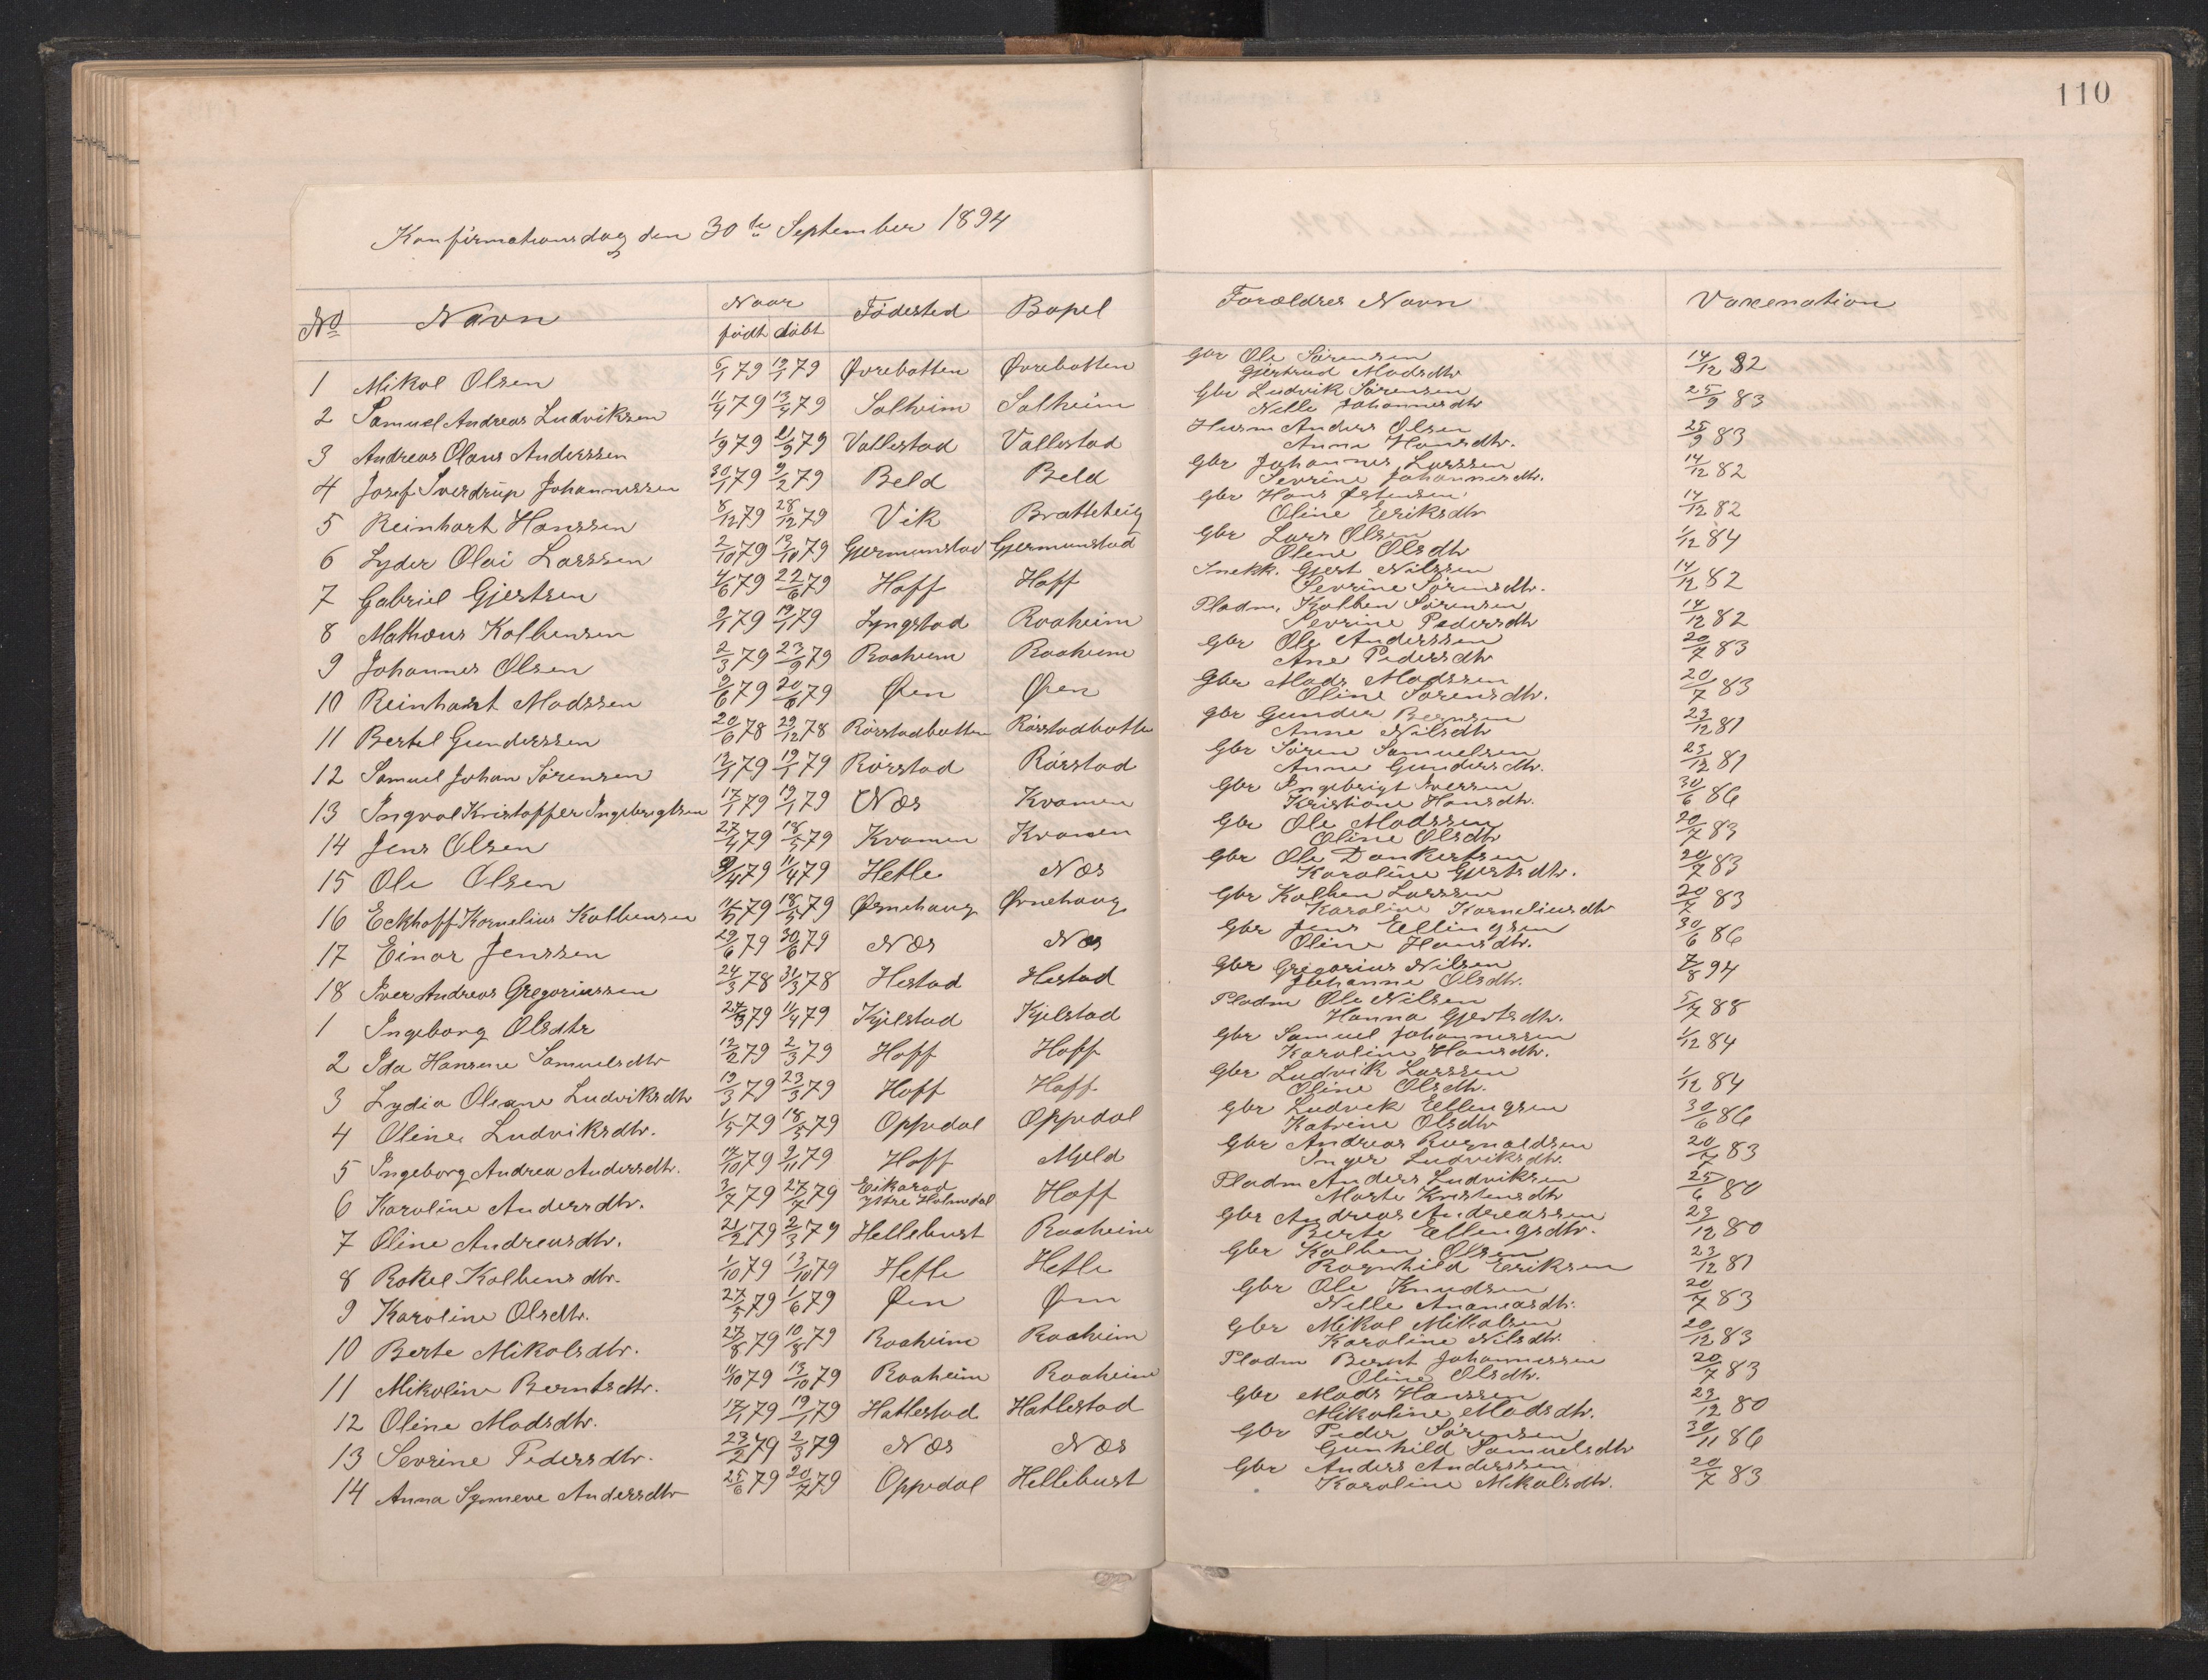 110
Konfirmationsdag den 30te September 1894
No Navn Naar Fødested Bopel Forældres Navn Vaxenation
født døbt
1 Mikal Olsen 6/1 79 19/1 79 Øvrebotten Øvrebotten Gbr Ole Sørensen 14/12 82
Gjertrud Madsdtr
2 Samuel Andreas Ludviksen 11/4 79 13/4 79 Salheim Salheim Gbr Ludvik Sørensen 25/9 83
Nille Johannesdtr
3 Andreas Olaus Anderssen 1/9 79 21/9 79 Vallestad Vallestad Husm Anders Olsen 25/9 83
Anna Hansdtr.
4 Josef Sverdrup Johannessen 30/1 79 9/2 79 Beld Beld Gbr Johannes Larssen 14/12 82
Sevrine Johannesdtr.
5 Reinhart Hanssen 8/12 79 28/12 79 Vik Bratteteig Gbr Hans Østensen 14/12 82
Oline Eriksdtr
6 Lyder Olai Larssen 2/10 79 13/10 79 Gjermunstad Gjermunstad Gbr Lars Olsen 1/12 84
Olene Olsdtr
7 Gabriel Gjertsen 4/6 79 22/6 79 Hoff Hoff Snekk. Gjert Nilssen 14/12 82
Sevrine Sørensdtr.
8 Mathæus Kolbensen 9/1 79 19/1 79 Lyngstad Raaheim Pladm. Kolben Sørensen 14/12 82
Sevrine Pedersdtr
9 Johannes Olsen 2/3 79 23/9 79 Raaheim Raaheim Gbr Ole Anderssen 20/7 83
Ane Pedersdtr
10 Reinhart Madssen 9/6 79 20/6 79 Øen Øen Gbr Mads Madssen 20/7 83
Oline Sørensdtr.
11 Bertel Gunderssen 20/6 78 29/12 78 Rørstadbotten Rørstadbotte Gbr Gunder 23/12 81
Anne Nilsdtr
12 Samuel Johan Sørensen 12/1 79 19/1 79 Rørstad Rørstad Gbr Søren Samuelsen 23/12 81
Anne Gundersdtr.
13 Ingval Kristoffer Ingebrigtsen 17/1 79 19/1 79 Næs Kvamen Gbr Ingebrigt Iversen 30/6 86
Kristiane Hansdtr.
14 Jens Olsen 27/4 79 18/5 79 Kvamen Kvamen Gbr Ole Madssen 20/7 83
Oline Olsdtr
15 Ole Olsen 9/4 79 11/4 79 Hetle Næs Gbr Ole Dankertsen 20/7 83
Karoline Gjertsdtr.
16 Eckhoff Kornelius Kolbensen 79 18/5 79 Ørnehaug Ørnehaug Gbr Kolben Larssen 20/7 83
Karoline Korneliusdtr
17 Einar Jenssen 29/6 79 30/6 79 Næs Næs Gbr Jens Ellingsen 30/6 86
Oline Hansdtr.
18 Iver Andreas Gregoriussen 24/3 78 31/3 78 Hestad Hestad Gbr Gregorius Nilsen 7/8 94
Johanne Olsdtr.
1 Ingeborg Olsdtr 27/3 79 11/4 79 Kjelstad Kjelstad Pladm Ole Nilsen 5/7 88
Hanna Gjertsdtr.
2 Ida Hansine Samuelsdtr 12/2 79 2/3 79 Hoff Hoff Gbr Samuel Johannessen 1/12 84
Karoline Hansdtr.
3 Lydia Oleane Ludviksdtr 19/3 79 23/3 79 Hoff Hoff Gbr Ludvik Larssen 1/12 84
Oline Olsdtr.
4 Oline Ludviksdtr. 1/5 79 18/5 79 Oppedal Oppedal Gbr Ludvek Ellengsen 30/6 86
Katrine Olsdtr
5 Ingeborg Andrea Andersdtr. 14/10 79 2/11 79 Hoff Mjeld Gbr Andreas Ragnaldsen 20/7 83
Inger Ludviksdtr.
6 Karoline Andersdtr. 3/7 79 27/7 79 Eikarad Hoff Pladm Anders Ludviksen 25/6 80
Ytre Holmedal Marte Kristensdtr
7 Oline Andreasdtr. 21/2 79 2/3 79 Hellebust Raaheim Gbr Andreas Andreassen 23/12 80
Berte Ellengsdtr.
8 Rakel Kolbensdtr. 1/10 79 13/10 79 Hetle Hetle Gbr Kolben Olsen 23/12 81
Ragnhild Eriksen
9 Karoline Olsdtr. 27/5 79 1/6 79 Øen Øen Gbr Ole Knudsen 20/7 83
Nille Ananiasdtr.
10 Berte Mikalsdtr. 27/8 79 10/8 79 Raaheim Raaheim Gbr Mikal Mikalsen 20/12 83
Karoline Nilsdtr.
11 Mikoline Berntsdtr. 11/10 79 13/10 79 Raaheim Raaheim Pladm Bernt Johannessen 20/7 83
Oline Olsdtr.
12 Oline Madsdtr. 17/1 79 19/1 79 Hatlestad Hatlestad Gbr Mads Hanssen 23/12 80
Mikoline Madsdtr.
13 Sevrine Pedersdtr. 23/2 79 2/3 79 Næs Næs Gbr Peder Sørensen 30/11 86
Gunhild Samuelsdtr
14 Anna Synneve Andersdtr 25/6 79 20/7 79 Oppedal Hellebust Gbr Anders Anderssen 20/7 83
Karoline Mikalsdtr.